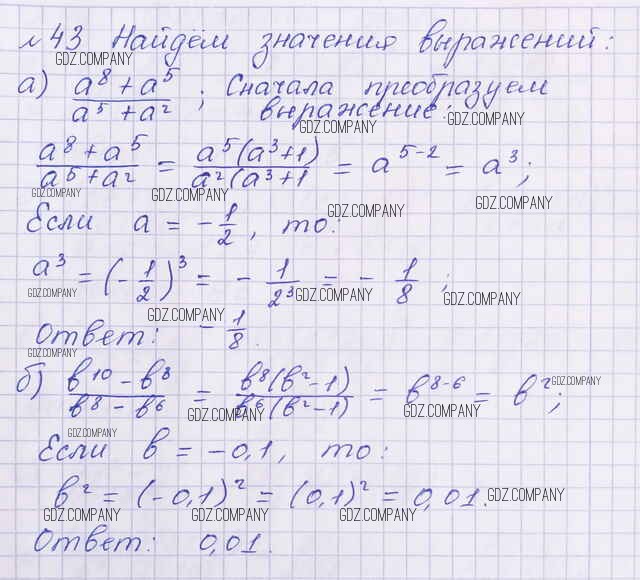 № 43 Найдём значения выражений:
GDZ.COMPANY
а) (a⁸ + a⁵)/(a⁵ + a²) ; Сначала преобразуем
выражение:
GDZ.COMPANY GDZ.COMPANY
(a⁸ + a⁵)/(a⁵ + a²) = (a⁵(a³+1))/(a²(a³+1) = a⁵⁻² = a³;
GDZ.COMPANY GDZ.COMPANY GDZ.COMPANY
Если a = -1/2, то:
GDZ.COMPANY
a³ = (-1/2)³ = - 1/2³ = - 1/8 ;
GDZ.COMPANY GDZ.COMPANY GDZ.COMPANY
GDZ.COMPANY
Ответ: - 1/8.
GDZ.COMPANY
б) (b¹⁰ - b⁸)/(b⁸ - b⁶) = (b⁸(b²-1))/(b⁶(b²-1)) = b⁸⁻⁶ = b²;
GDZ.COMPANY
GDZ.COMPANY GDZ.COMPANY
GDZ.COMPANY
Если b = -0,1, то:
b² = (-0,1)² = (0,1)² = 0,01.
GDZ.COMPANY
GDZ.COMPANY GDZ.COMPANY GDZ.COMPANY
Ответ: 0,01.